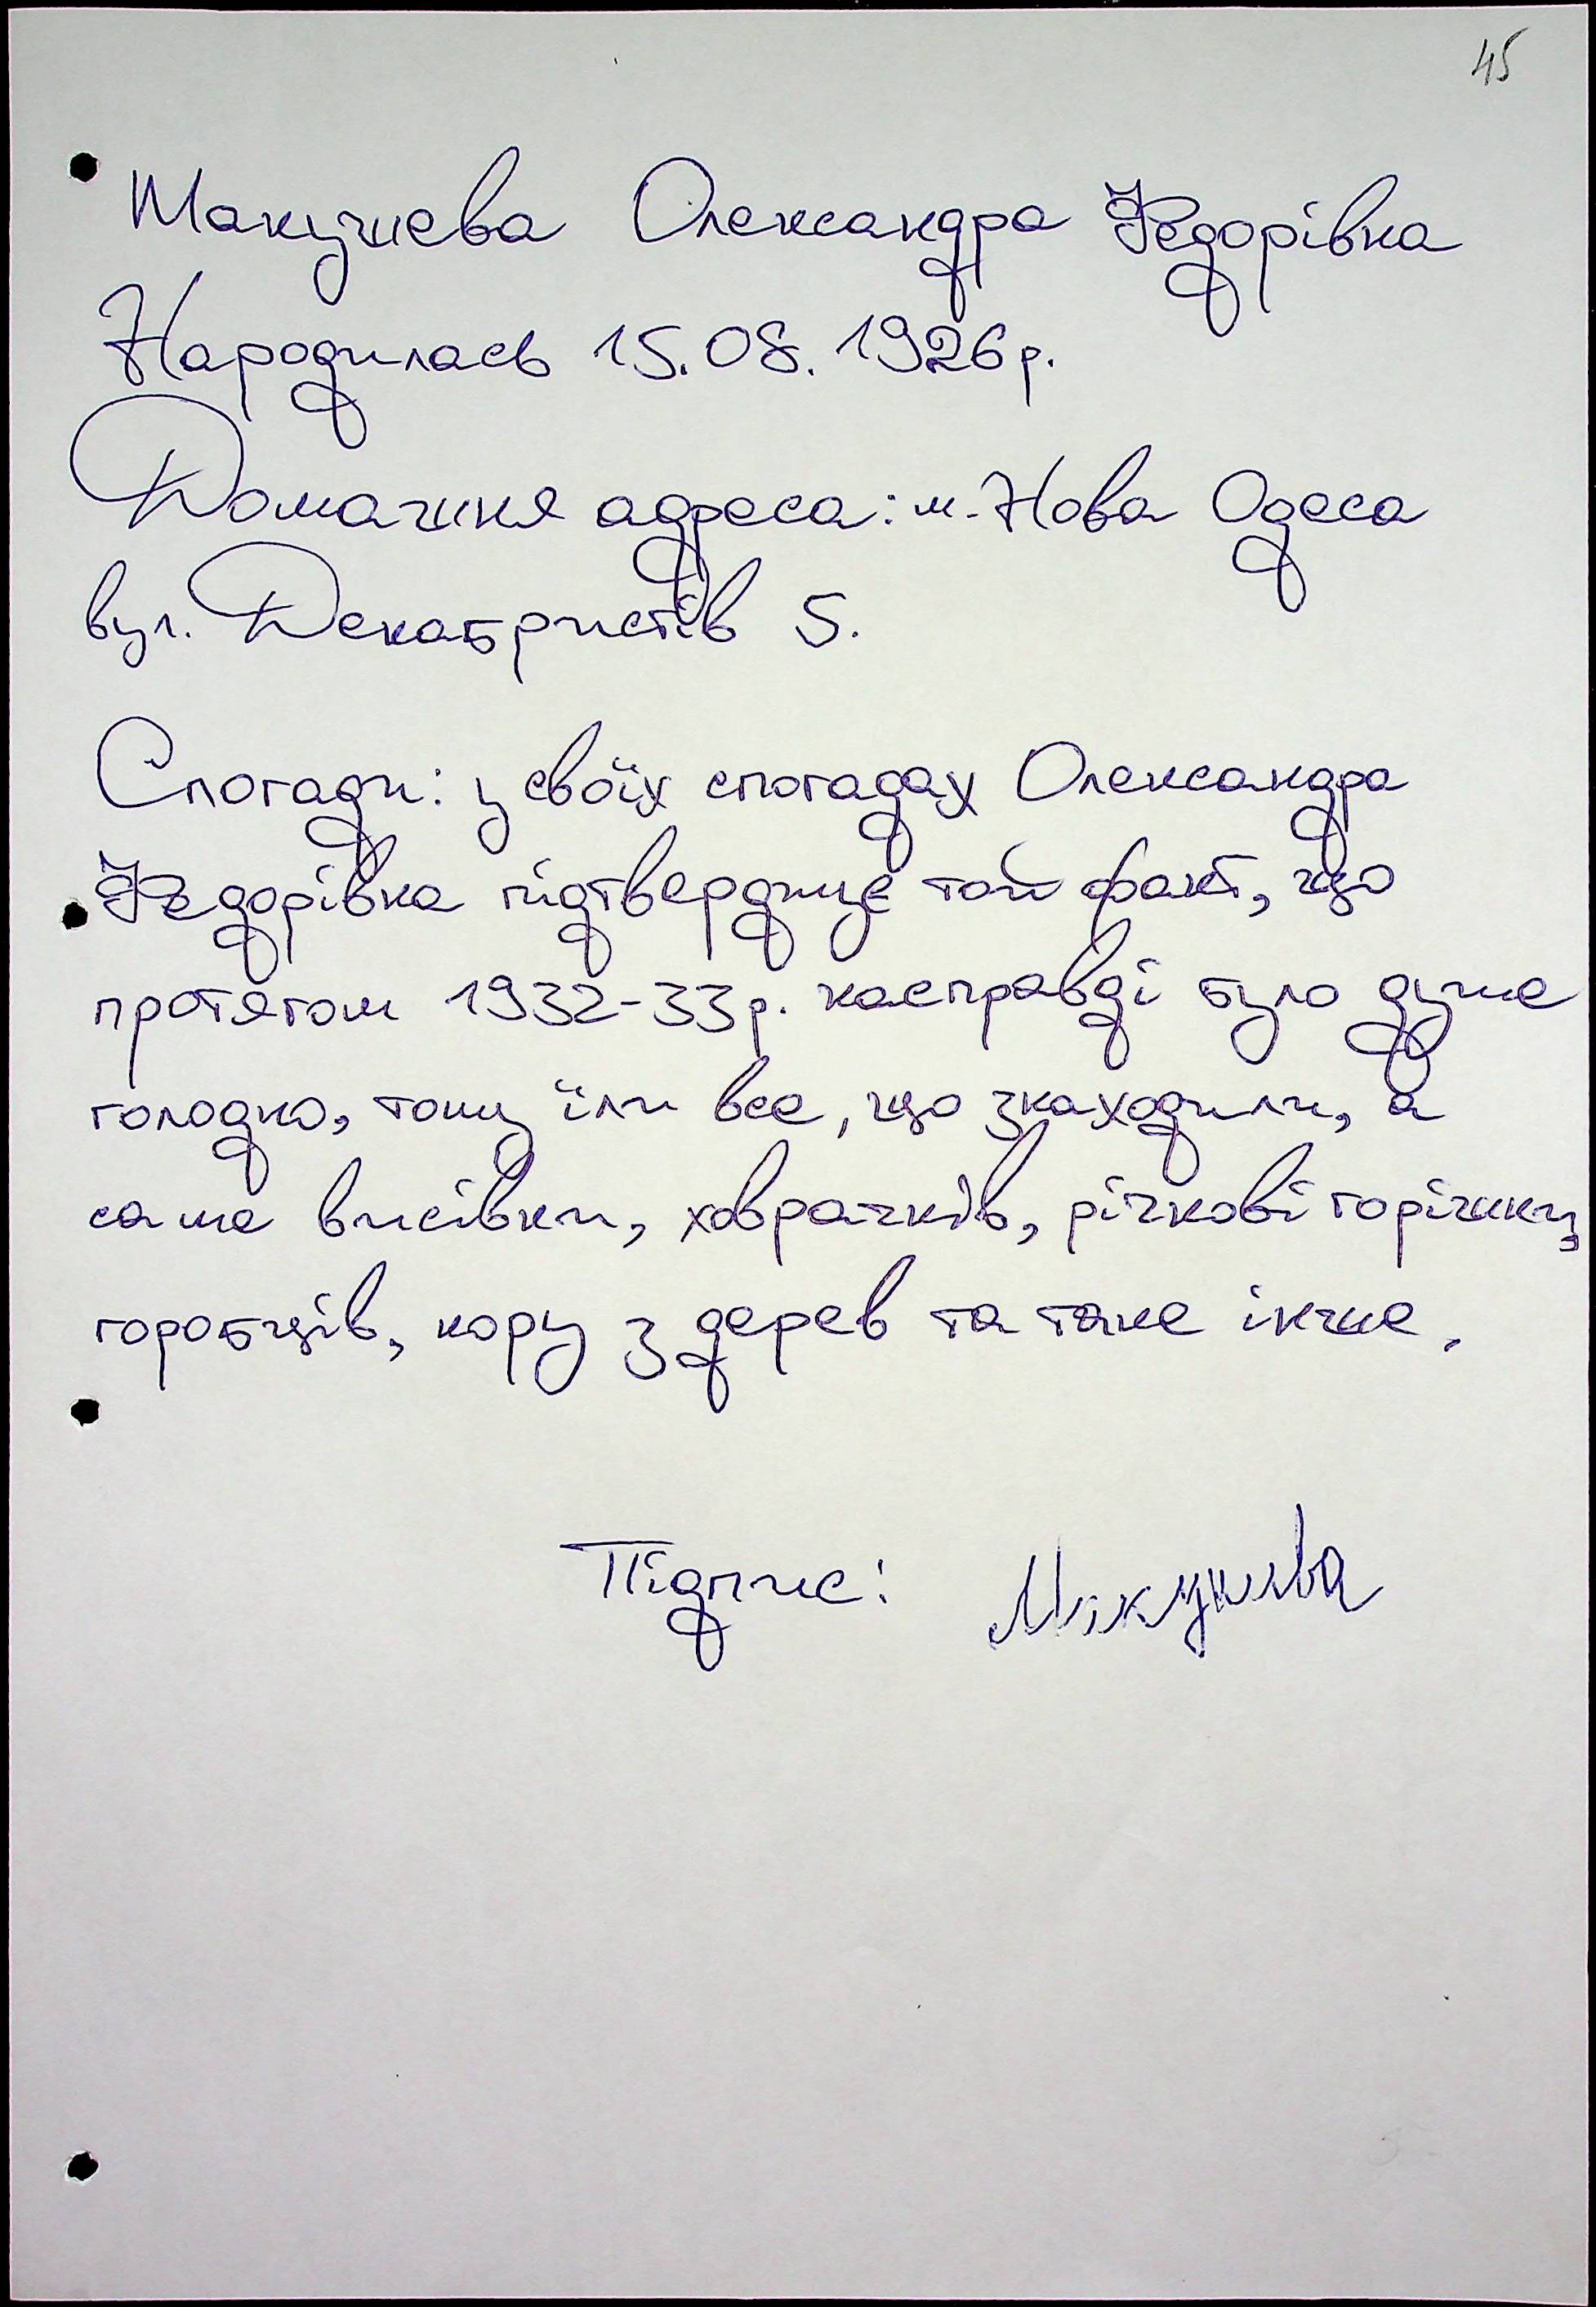 45
Макушева Олександра Федорівна
Народилась 15.08.1926 р.
Домашня адреса: м. Нова Одеса
вул. Декабристів 5.
Спогади: у своїх спогадах Олександра
Федорівна підтверджує той факт, що
протягом 1932-33 р. насправді було дуже
голодно, тому їли все, що знаходили, а
саме висівки, ховрашків, річкові горішки,
горобців, кору з дерев та таке інше.
Підпис: Макушева